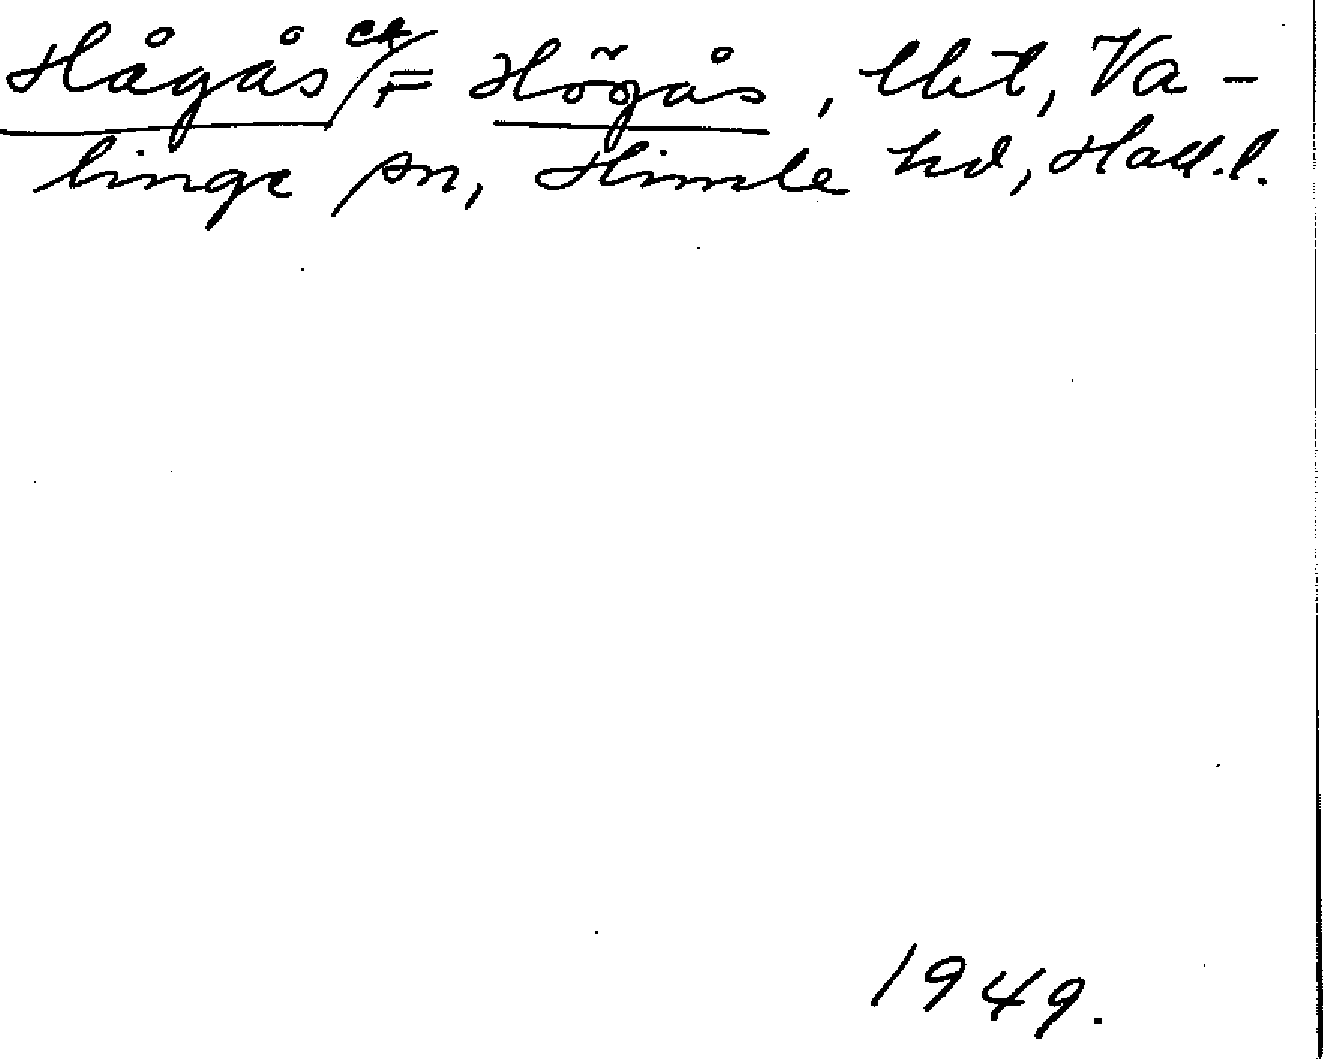 Hågås = Högås, lht, Va-
linge sn, Himle hd, Hall.l.
1949.